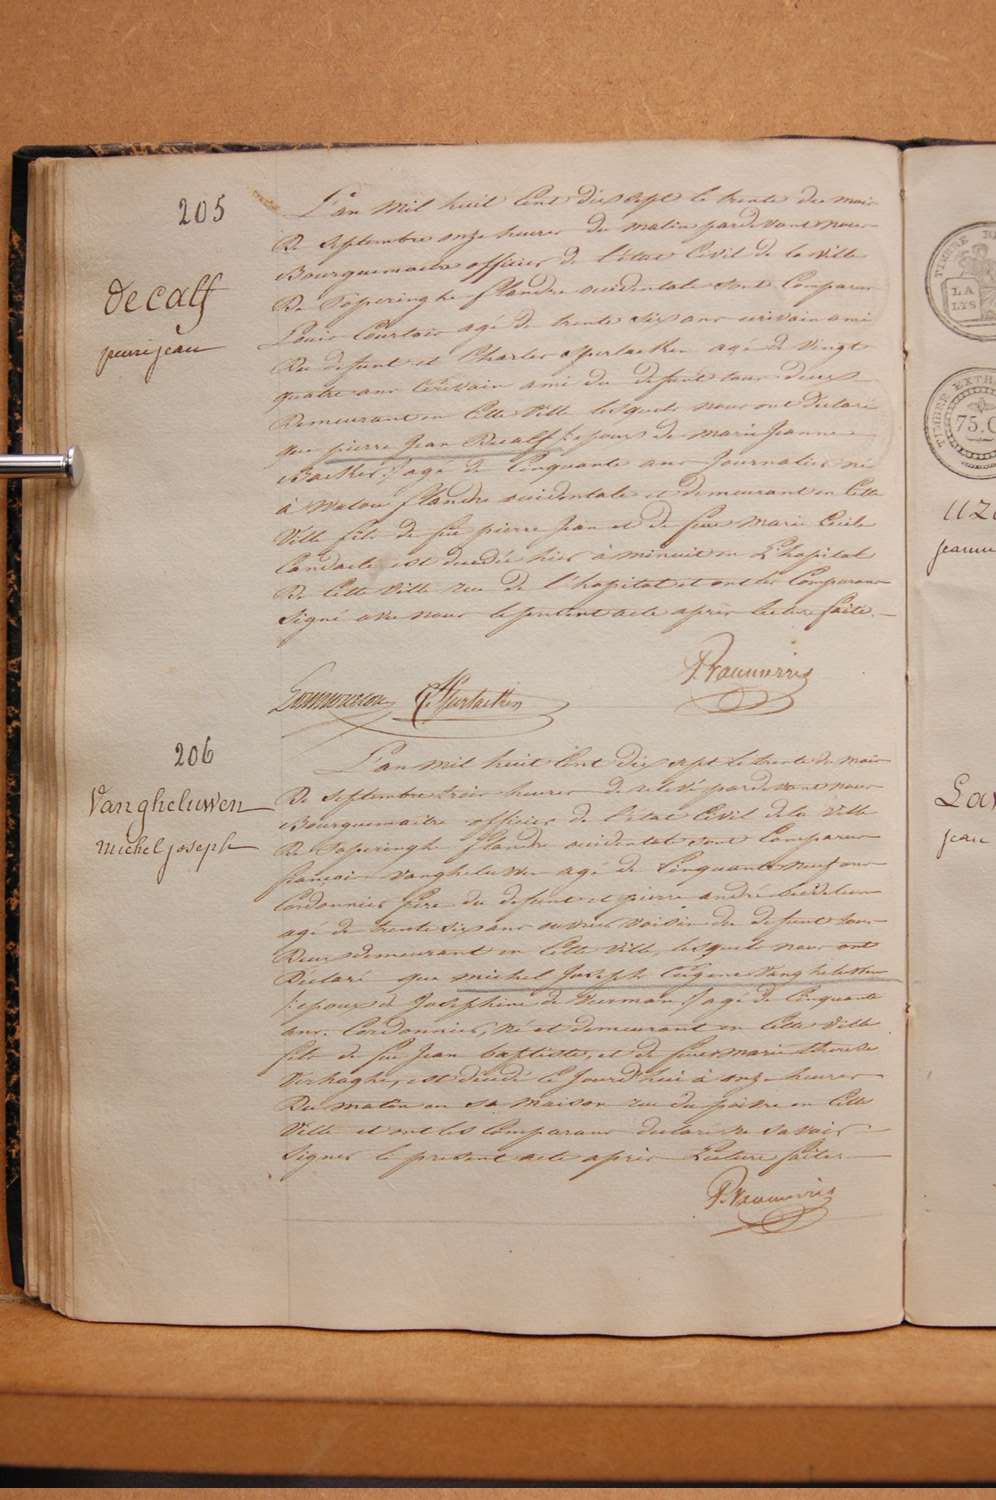 205
Decalf
pierre jean
L'an mil huit Cent dix sept le trente du mois
De Septembre onze heures du matin pardevant nous
Bourguemaitre officier de l'état Civil de la ville
De Poperinghe flandre occidentale sont Comparus
Louis Courtois agé de trente six ans ecrivain ami
Du defunt et Charles Spurlaeken agé de vingt
quatre ans Ecrivain ami du defunt tous deux
Demeurant en Cette Ville lesquels nous ont Declaré
que pierre Jean Decalf /: epoux de marie Jeanne
Backer :/ agé de Cinquante ans Journalier né
à Watou flandre occidentale et demeurant en Cette
Ville fils de feu pierre Jean et de feue Marie Cecile
est decedé hier à minuit en L'hopital
De Cette Ville rue de l'hopital et ont les Comparans
Signé avec nous le present acte après lecture faite.
206
Vangheluwen
michel joseph
L'an mil huit Cent dix sept le trente du mois
De Septembre trois heures de relevé pardevant nous
Bourguemaitre officier de l'état Civil de la Ville
De Poperinghe flandre occidentale sont Comparus
françois Vangheluwen agé de Cinquante neuf ans
Cordonnier frere du defunt et pierre andré
agé de trente six ans ouvrier voisin du defunt tous
Deux demeurant en Cette Ville, lesquels nous ont
Declaré que michel Joseph Eugene Vangheluwen
/: epoux de Josephine de Vierman :/ agé de Cinquante
ans Cordonnier, né et demeurant en Cette Ville
fils de feu Jean baptiste, et de feue marie therese
Verhaghe, est decedé Ce Jourd'hui à onze heures
Du matin en sa maison rue du en Cette
Ville et ont les Comparans declaré ne savoir
Signer le present acte après Lecture faite.
TIMBRE
LA
LYS
TIMBRE EXTR
75.C
jeanne
jean